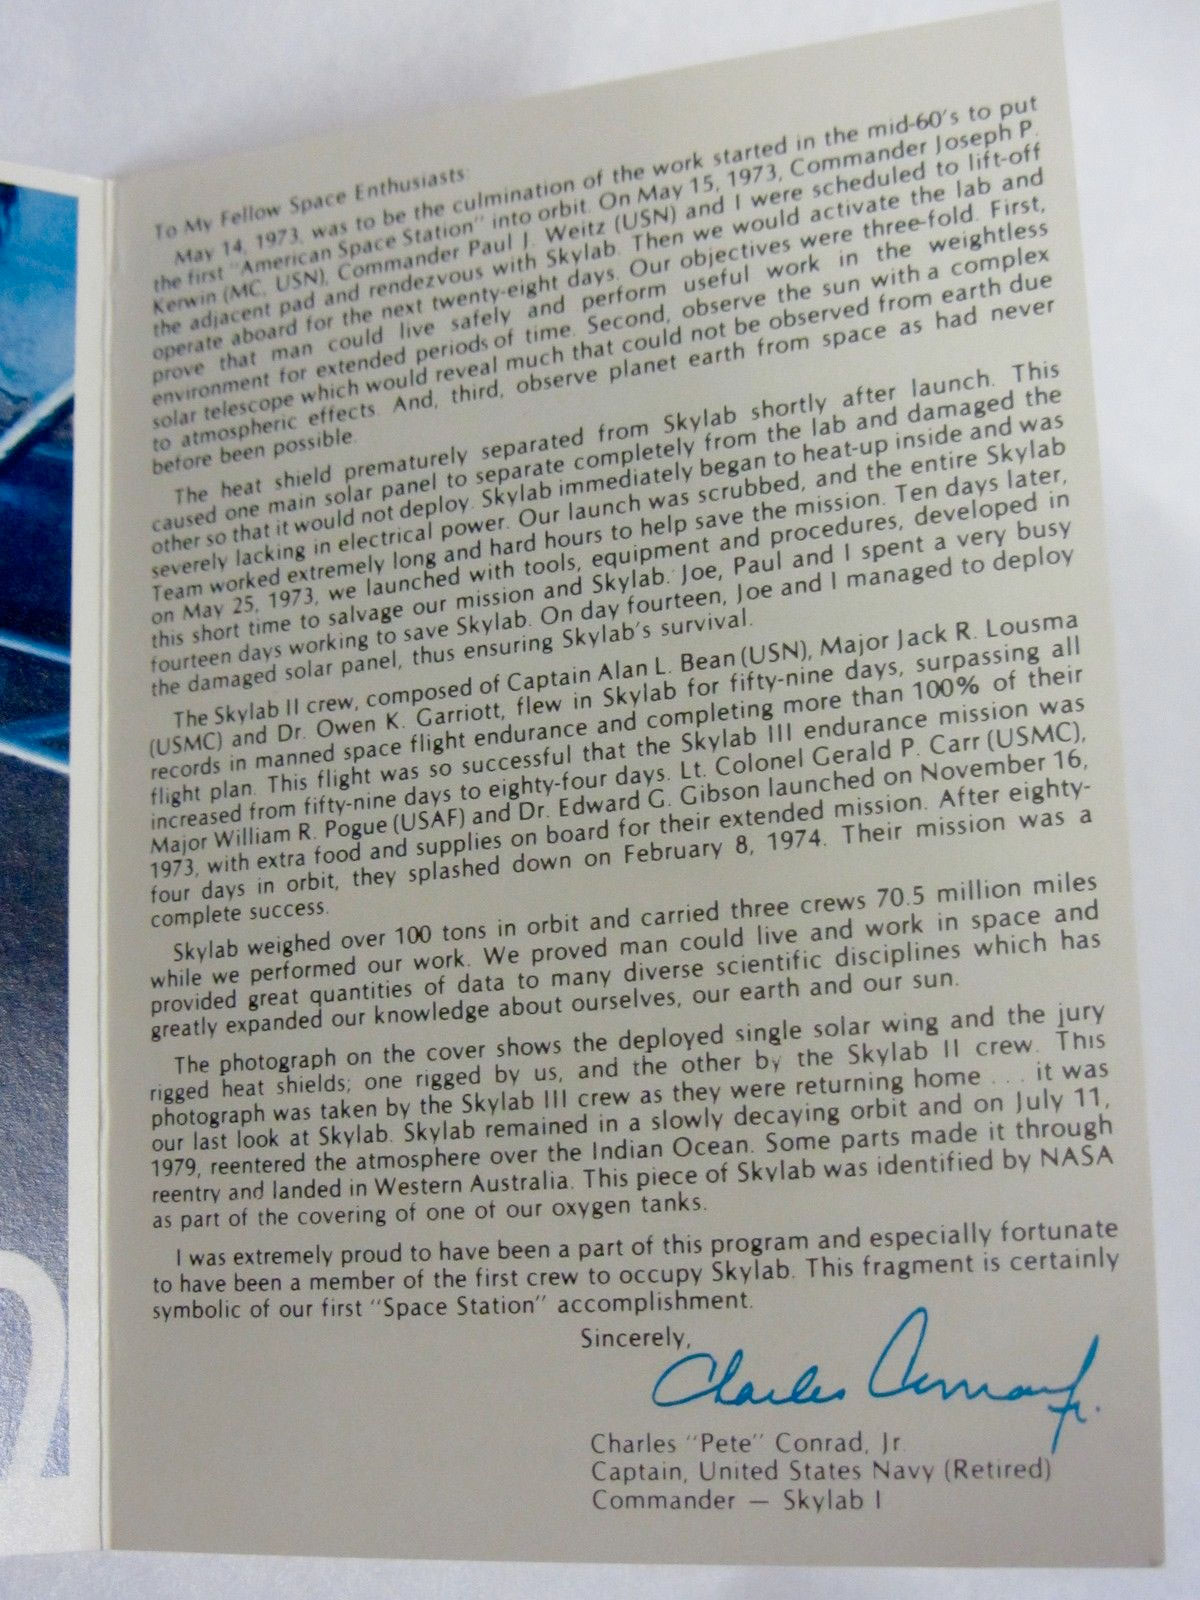 To My Fellow Space Enthusiasts:
May 14, 1973, was to be the culmination of the work started in the mid-60's to put
the first "American Space Station" into orbit. On May 15, 1973, Commander Joseph P.
Kerwin (MC, USN), Commander Paul J. Weitz (USN) and I were scheduled to lift-off
the adjacent pad and rendezvous with Skylab. Then we would activate the lab and
operate aboard for the next twenty-eight days. Our objectives were three-fold. First,
prove that man could live safely and perform useful work in the weightless
environment for extended periods of time. Second, observe the sun with a complex
solar telescope which would reveal much that could not be observed from earth due
to atmospheric effects. And, third, observe planet earth from space as had never
before been possible.
The heat shield prematurely separated from Skylab shortly after launch. This
caused one main solar panel to separate completely from the lab and damaged the
other so that it would not deploy. Skylab immediately began to heat-up inside and was
severely lacking in electrical power. Our launch was scrubbed, and the entire Skylab
Team worked extremely long and hard hours to help save the mission. Ten days later,
on May 25, 1973, we launched with tools, equipment and procedures, developed in
this short time to salvage our mission and Skylab. Joe, Paul and I spent a very busy
fourteen days working to save Skylab. On day fourteen, Joe and I managed to deploy
the damaged solar panel, thus ensuring Skylab's survival.
The Skylab II crew, composed of Captain Alan L. Bean (USN), Major Jack R. Lousma
(USMC) and Dr. Owen K. Garriott, flew in Skylab for fifty-nine days, surpassing all
records in manned space flight endurance and completing more than 100% of their
flight plan. This flight was so successful that the Skylab III endurance mission was
increased from fifty-nine days to eighty-four days. Lt. Colonel Gerald P. Carr (USMC),
Major William R. Pogue (USAF) and Dr. Edward G. Gibson launched on November 16,
1973, with extra food and supplies on board for their extended mission. After eighty-
four days in orbit, they splashed down on February 8, 1974. Their mission was a
complete success.
Skylab weighed over 100 tons in orbit and carried three crews 70.5 million miles
while we performed our work. We proved man could live and work in space and
provided great quantities of data to many diverse scientific disciplines which has
greatly expanded our knowledge about ourselves, our earth and our sun.
The photograph on the cover shows the deployed single solar wing and the jury
rigged heat shields; one rigged by us, and the other by the Skylab II crew. This
photograph was taken by the Skylab III crew as they were returning home . . . it was
our last look at Skylab. Skylab remained in a slowly decaying orbit and on July 11,
1979, reentered the atmosphere over the Indian Ocean. Some parts made it through
reentry and landed in Western Australia. This piece of Skylab was identified by NASA
as part of the covering of one of our oxygen tanks.
I was extremely proud to have been a part of this program and especially fortunate
to have been a member of the first crew to occupy Skylab. This fragment is certainly
symbolic of our first "Space Station" accomplishment.
Sincerely,
Charles Conrad Jr.
Charles "Pete" Conrad, Jr.
Captain, United States Navy (Retired)
Commander — Skylab I